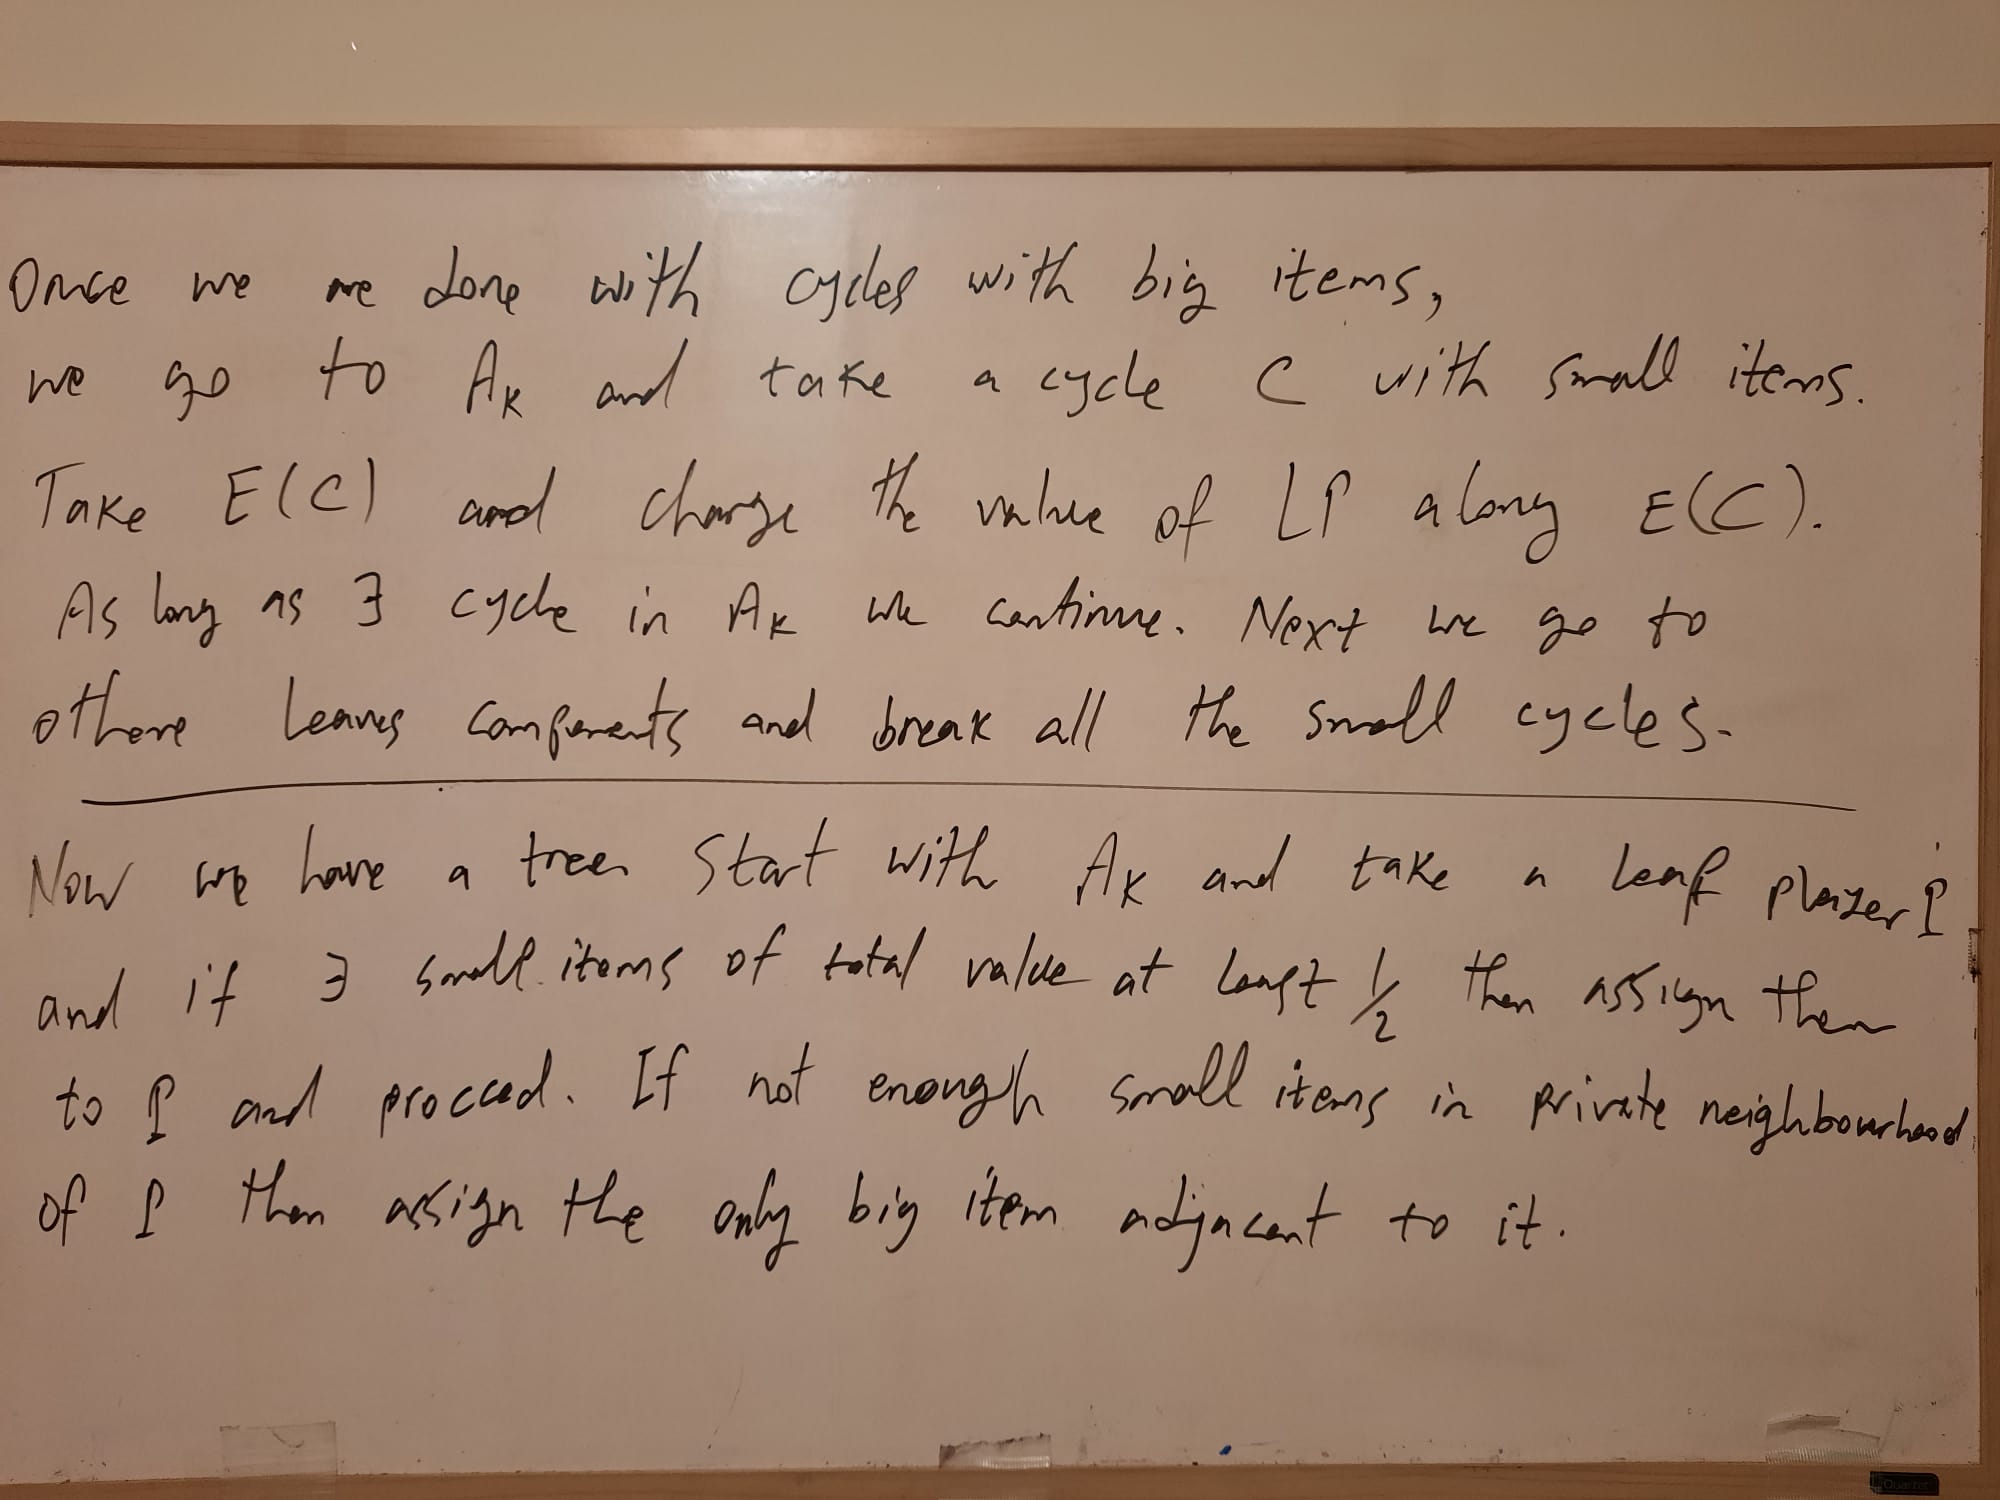 Once we are done with cycles with big items,
we go to A_K and take a cycle C with small items.
Take E(C) and change the value of LP along E(C).
As long as ∃ cycle in A_K we continue. Next we go to
othere leaves components and break all the small cycles.
Now we have a tree. Start with A_K and take a leaf player P
and if ∃ small items of total value at least 1/2 then assign them
to P and procced. If not enough small items in private neighbourhood
of P then assign the only big item adjacent to it.
Quartet